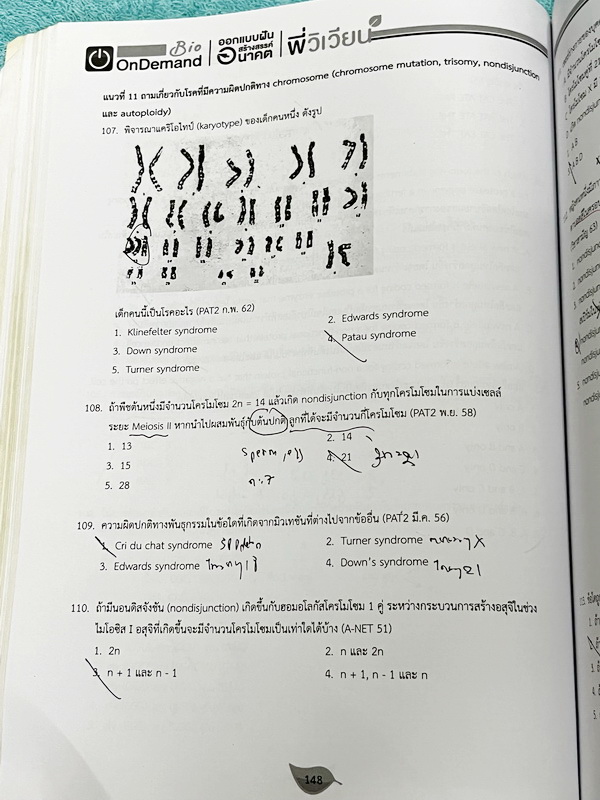 Bio
OnDemand
ออกแบบฝัน
สร้างสรรค์
อนาคต
พี่วิเวียน
แนวที่ 11 ถามเกี่ยวกับโรคที่มีความผิดปกติทาง chromosome (chromosome mutation, trisomy, nondisjunction
และ autoploidy)
107. พิจารณาแคริโอไทป์ (karyotype) ของเด็กคนหนึ่ง ดังรูป
เด็กคนนี้เป็นโรคอะไร (PAT2 ก.พ. 62)
1. Klinefelter syndrome
2. Edwards syndrome
3. Down syndrome
4. Patau syndrome
5. Turner syndrome
108. ถ้าพืชต้นหนึ่งมีจำนวนโครโมโซม 2n = 14 แล้วเกิด nondisjunction กับทุกโครโมโซมในการแบ่งเซลล์
ระยะ Meiosis II หากนำไปผสมพันธุ์กับต้นปกติ ลูกที่ได้จะมีจำนวนกี่โครโมโซม (PAT2 พ.ย. 58)
1. 13
2. 14
3. 15
4. 21
5. 28
109. ความผิดปกติทางพันธุกรรมในข้อใดที่เกิดจากมิวเทชันที่ต่างไปจากข้ออื่น (PAT2 มี.ค. 56)
1. Cri du chat syndrome
2. Turner syndrome
3. Edwards syndrome
4. Down's syndrome
110. ถ้ามีนอนดิสจังชัน (nondisjunction) เกิดขึ้นกับฮอมอโลกัสโครโมโซม 1 คู่ ระหว่างกระบวนการสร้างอสุจิในช่วง
ไมโอซิส I อสุจิที่เกิดขึ้นจะมีจำนวนโครโมโซมเป็นเท่าใดได้บ้าง (A-NET 51)
1. 2n
2. n และ 2n
3. n + 1 และ n - 1
4. n + 1, n - 1 และ n
148